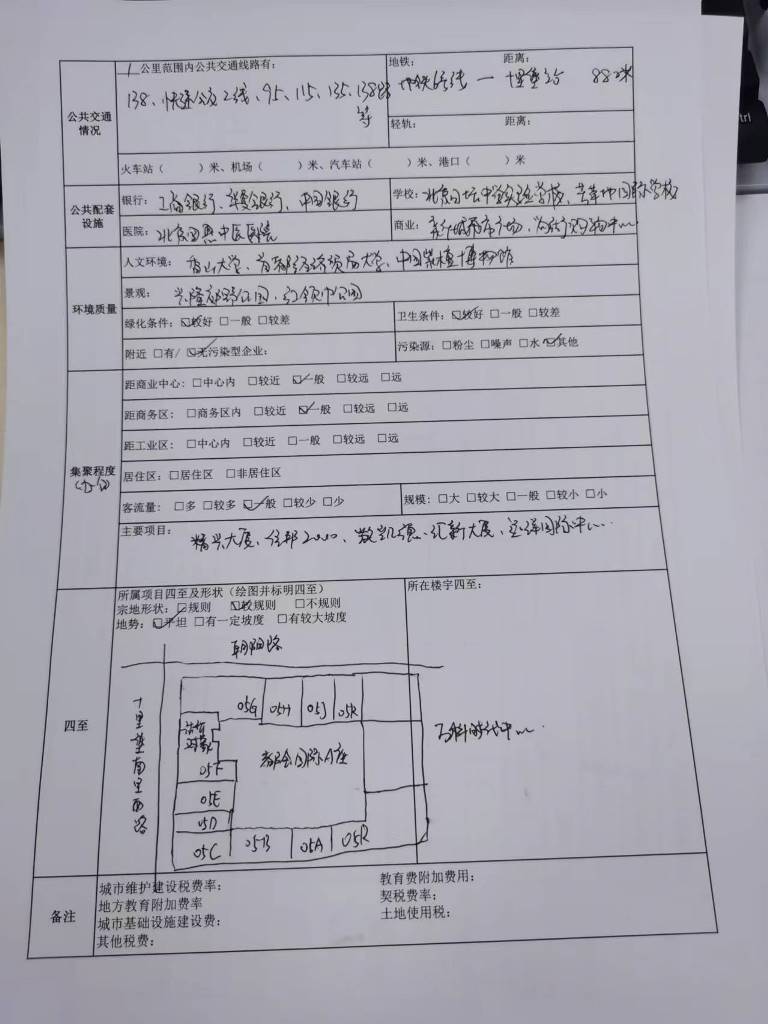 1 公里范围内公共交通线路有：
地铁： 距离：
138、快速公交2线、95、115、135、138路
等
地铁6号线 一 十里堡站 882米
公共交通
情况
轻轨： 距离：
火车站（ ）米、机场（ ）米、汽车站（ ）米、港口（ ）米
公共配套
设施
银行：工商银行、华夏银行、中国银行
学校：北京日坛中学实验学校、芳草地国际学校
医院：北京 中医医院
商业： 购物中心
环境质量
人文环境： 大学、首都经济贸易大学、中国紫檀博物馆
景观：兴隆郊野公园、红领巾公园
绿化条件：☑较好 □一般 □较差
卫生条件：☑较好 □一般 □较差
附近 □有/ ☑无污染型企业：
污染源：□粉尘 □噪声 □水 ☑其他
集聚程度
（办公）
距商业中心：□中心内 □较近 ☑一般 □较远 □远
距商务区：□商务区内 □较近 ☑一般 □较远 □远
距工业区：□中心内 □较近 □一般 □较远 □远
居住区：□居住区 □非居住区
客流量：□多 □较多 ☑一般 □较少 □少
规模：□大 □较大 □一般 □较小 □小
主要项目： 大厦、住邦2000、 汇新大厦、远洋国际中心
四至
所属项目四至及形状（绘图并标明四至）
所在楼宇四至：
宗地形状：□规则 ☑较规则 □不规则
地势：☑平坦 □有一定坡度 □有较大坡度
朝阳路
十里堡南里西路
05G 05H 05J 05K
估价
对象
05F
都会国际A座
万科时代中心
05E
05D
05C 05B 05A 05R
备注
城市维护建设税费率：
教育费附加费用：
地方教育附加费率
契税费率：
城市基础设施建设费：
土地使用税：
其他税费：